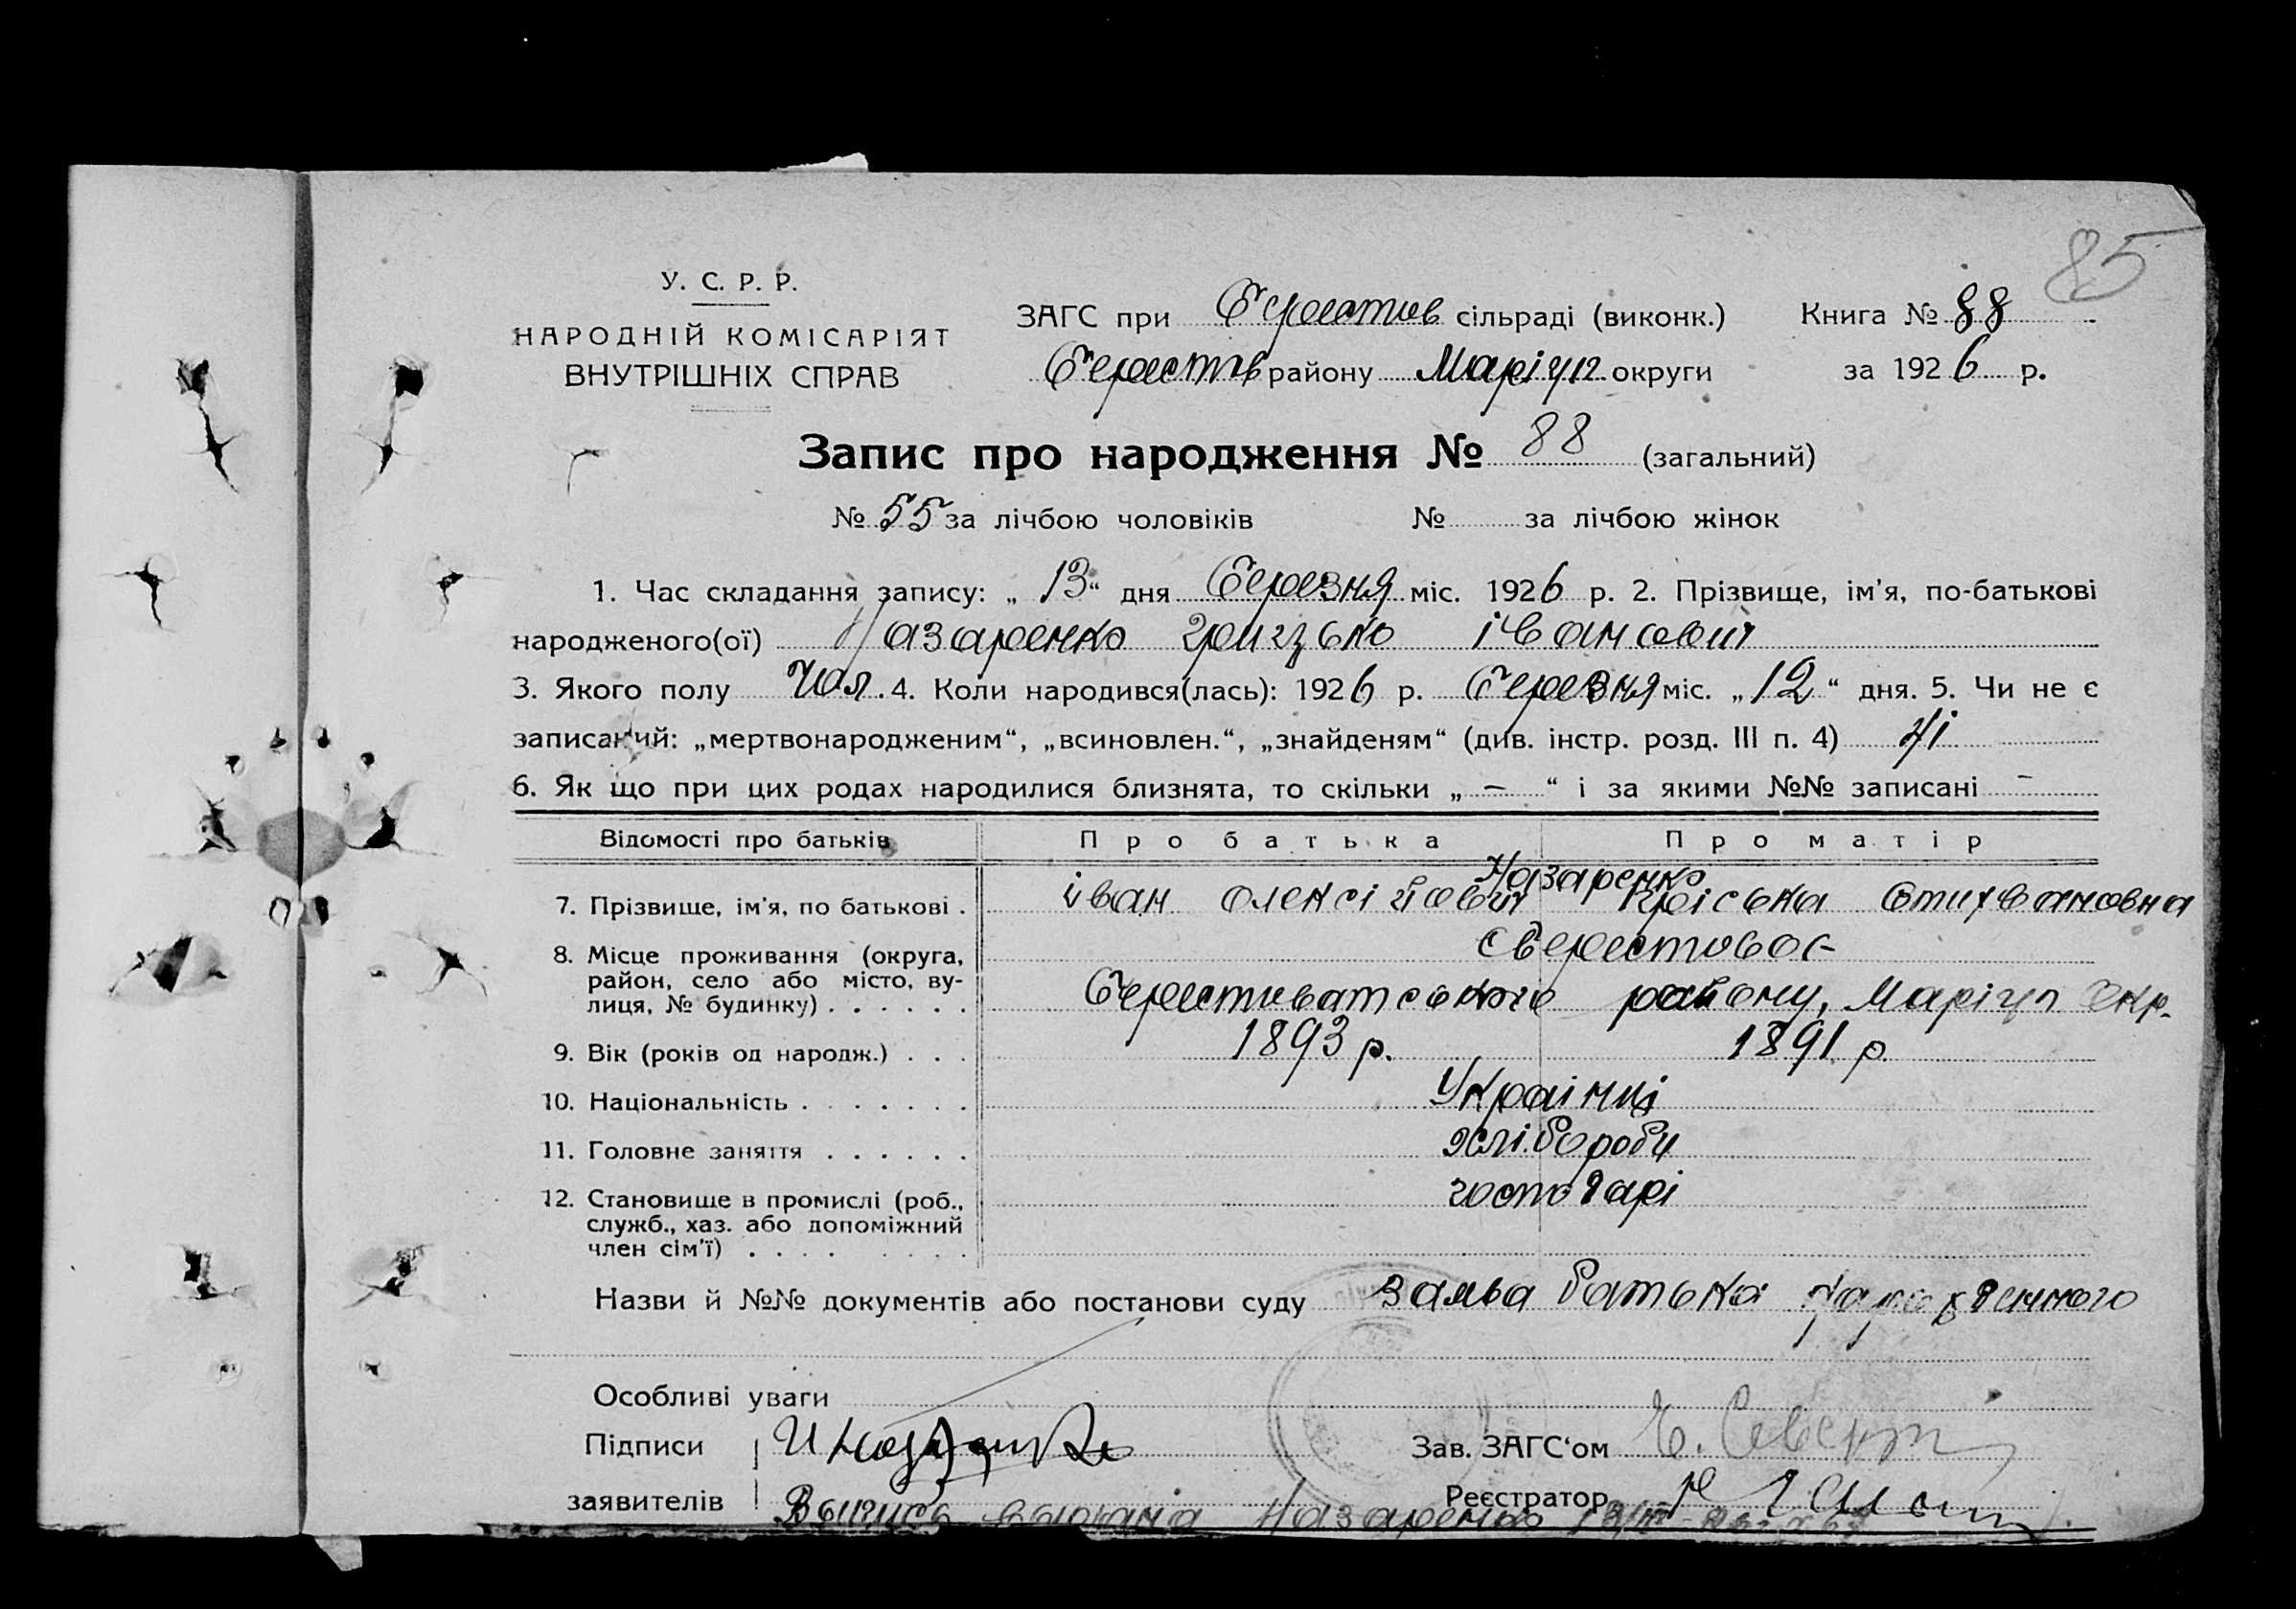 85
У. С. Р. Р.
НАРОДНІЙ КОМІСАРІЯТ
ВНУТРІШНІХ СПРАВ
ЗАГС при Берестов сільраді (виконк.) Книга № 88
Берестів району Маріуп. округи за 1926 р.
Запис про народження № 88 (загальний)
№ 55 за лічбою чоловіків № за лічбою жінок
1. Час складання запису: „ 13 “ дня Березня міс. 1926 р. 2. Прізвище, ім'я, по-батькові
народженого(ої) Назаренко Грицько Іванович
3. Якого полу Чол. 4. Коли народився(лась): 1926 р. Березня міс. „ 12 “ дня. 5. Чи не є
записаний: „мертвонародженим“, „всиновлен.“, „знайденям“ (див. інстр. розд. III п. 4) Ні
6. Як що при цих родах народилися близнята, то скільки „ – “ і за якими №№ записані –
Відомості про батьків Про батька Про матір
Назаренко
7. Прізвище, ім'я, по батькові . Іван Олексійович
8. Місце проживання (округа, район, село або місто, вулиця, № будинку) . . . . . .
Берестоватського району, Маріуп Окр.
9. Вік (років од народж.) . . . 1893 р. 1891 р.
10. Національність . . . . . . . Українці
11. Головне заняття . . . . . . хліб
12. Становище в промислі (роб., служб., хаз. або допоміжний член сім'ї) . . . . . . . .
господарі
Назви й №№ документів або постанови суду заява батька
Особливі уваги
Підписи
Зав. ЗАГС‘ом
заявителів
Реєстратор
Назаренко